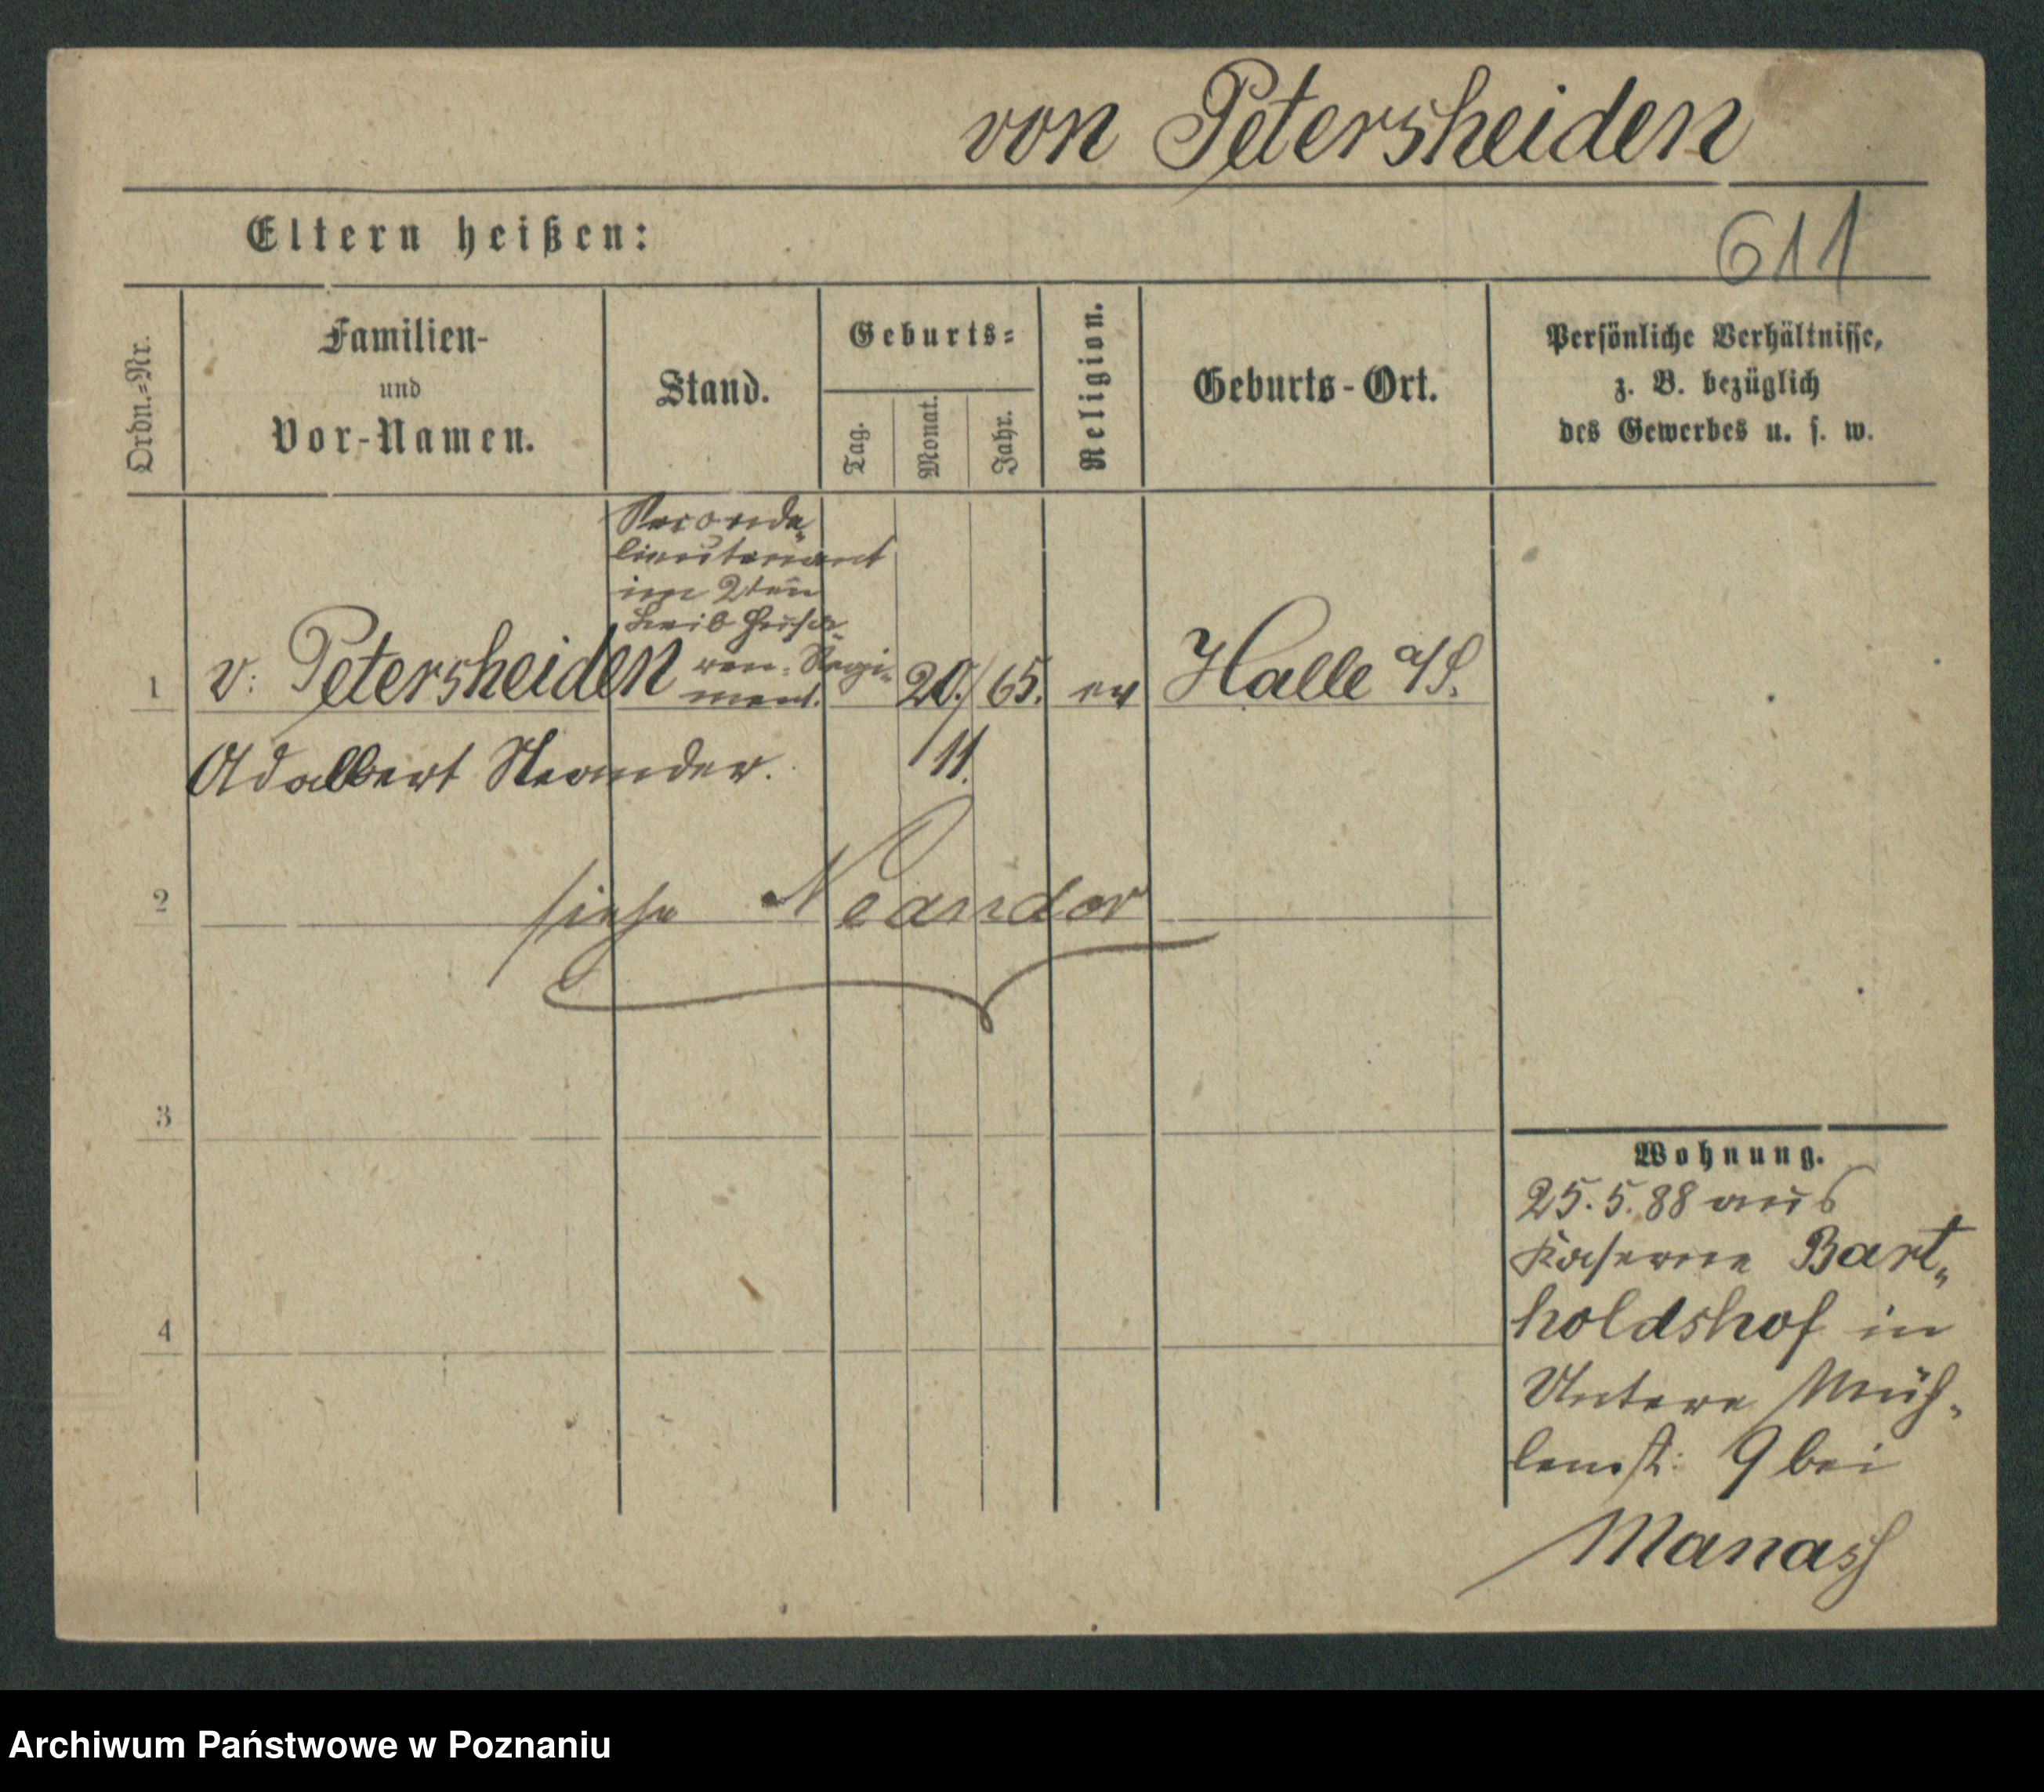 von Petersheiden
Eltern heißen:
611
Ordn.=Nr.
Familien-
und
Vor-Namen.
Stand.
Geburts=
Tag.
Monat.
Jahr.
Religion.
Geburts-Ort.
Persönliche Verhältnisse,
z. B. bezüglich
des Gewerbes u. s. w.
Seconde-
lieutenant
im 2ten
Leib Husa-
ren-Regi-
ment.
1 v: Petersheiden 20./11. 65. ev Halle a/S.
Adalbert Neander.
2
siehe Neander
3
4
Wohnung.
25.5.88 aus
Kaserne Bart-
holdshof in
Untere Müh-
lenst: 9 bei
Manass
Archiwum Państwowe w Poznaniu